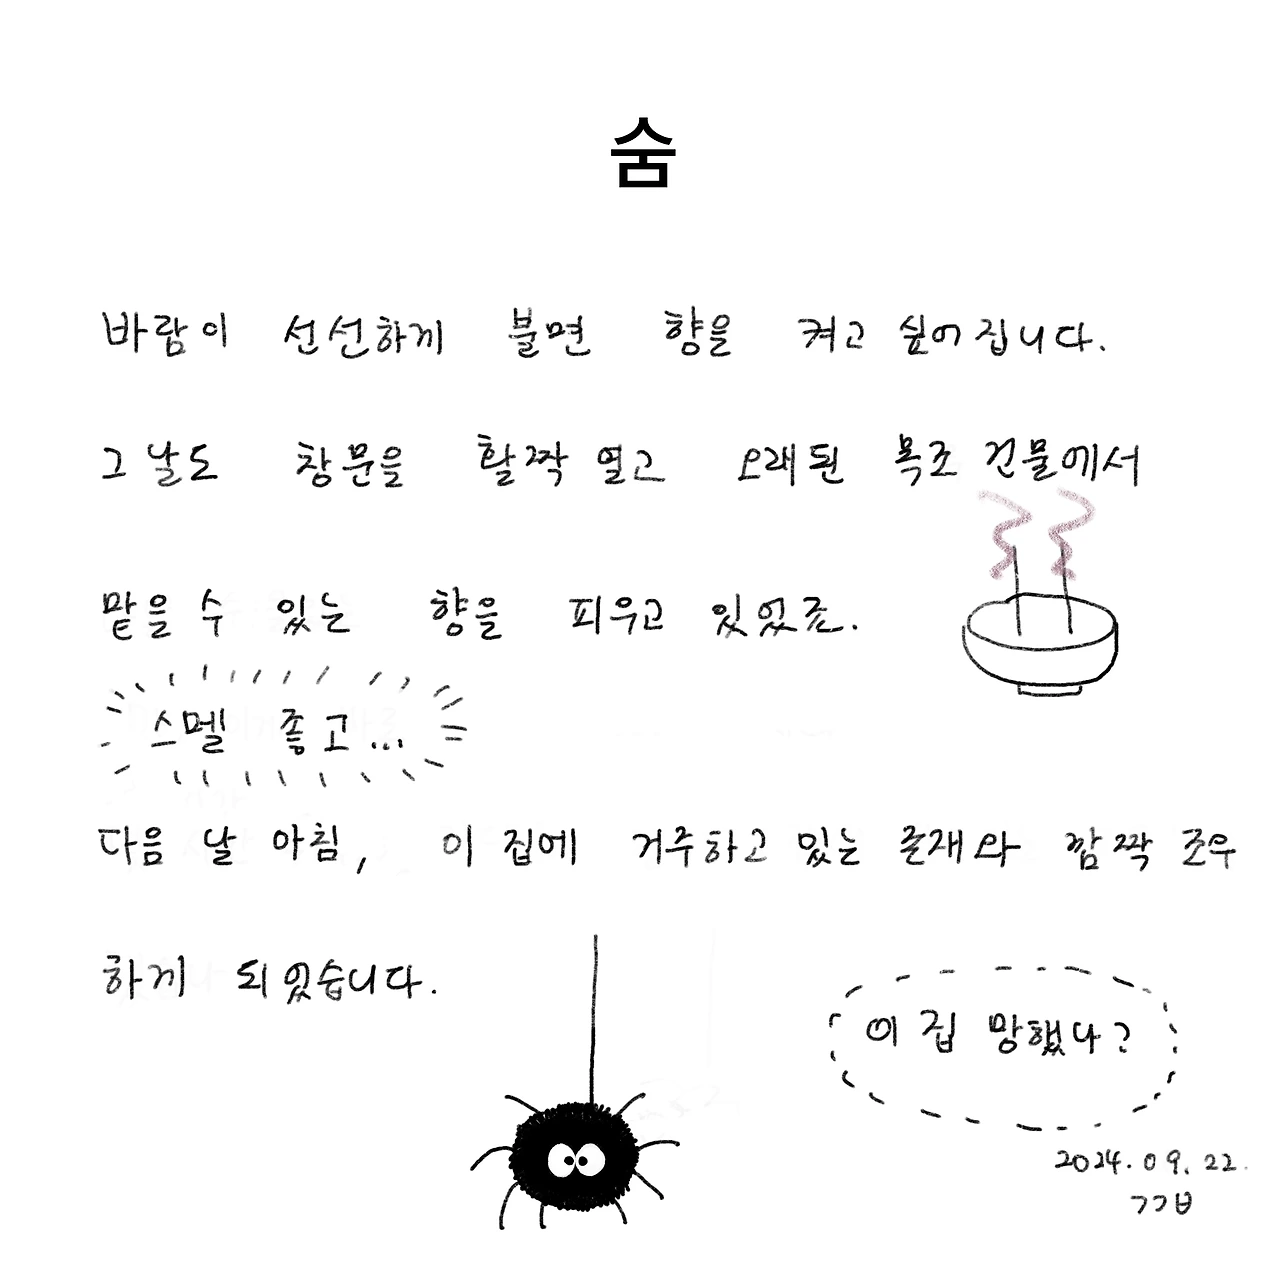 숨
바람이 선선하게 불면 향을 켜고 싶어집니다.
그날도 창문을 활짝 열고 오래된 목조 건물에서
맡을 수 있는 향을 피우고 있었죠.
스멜 좋고...
다음 날 아침, 이 집에 거주하고 있는 존재와 깜짝 조우
하게 되었습니다.
이 집 망했나?
2024.09.22.
ㄱㄱㅂ